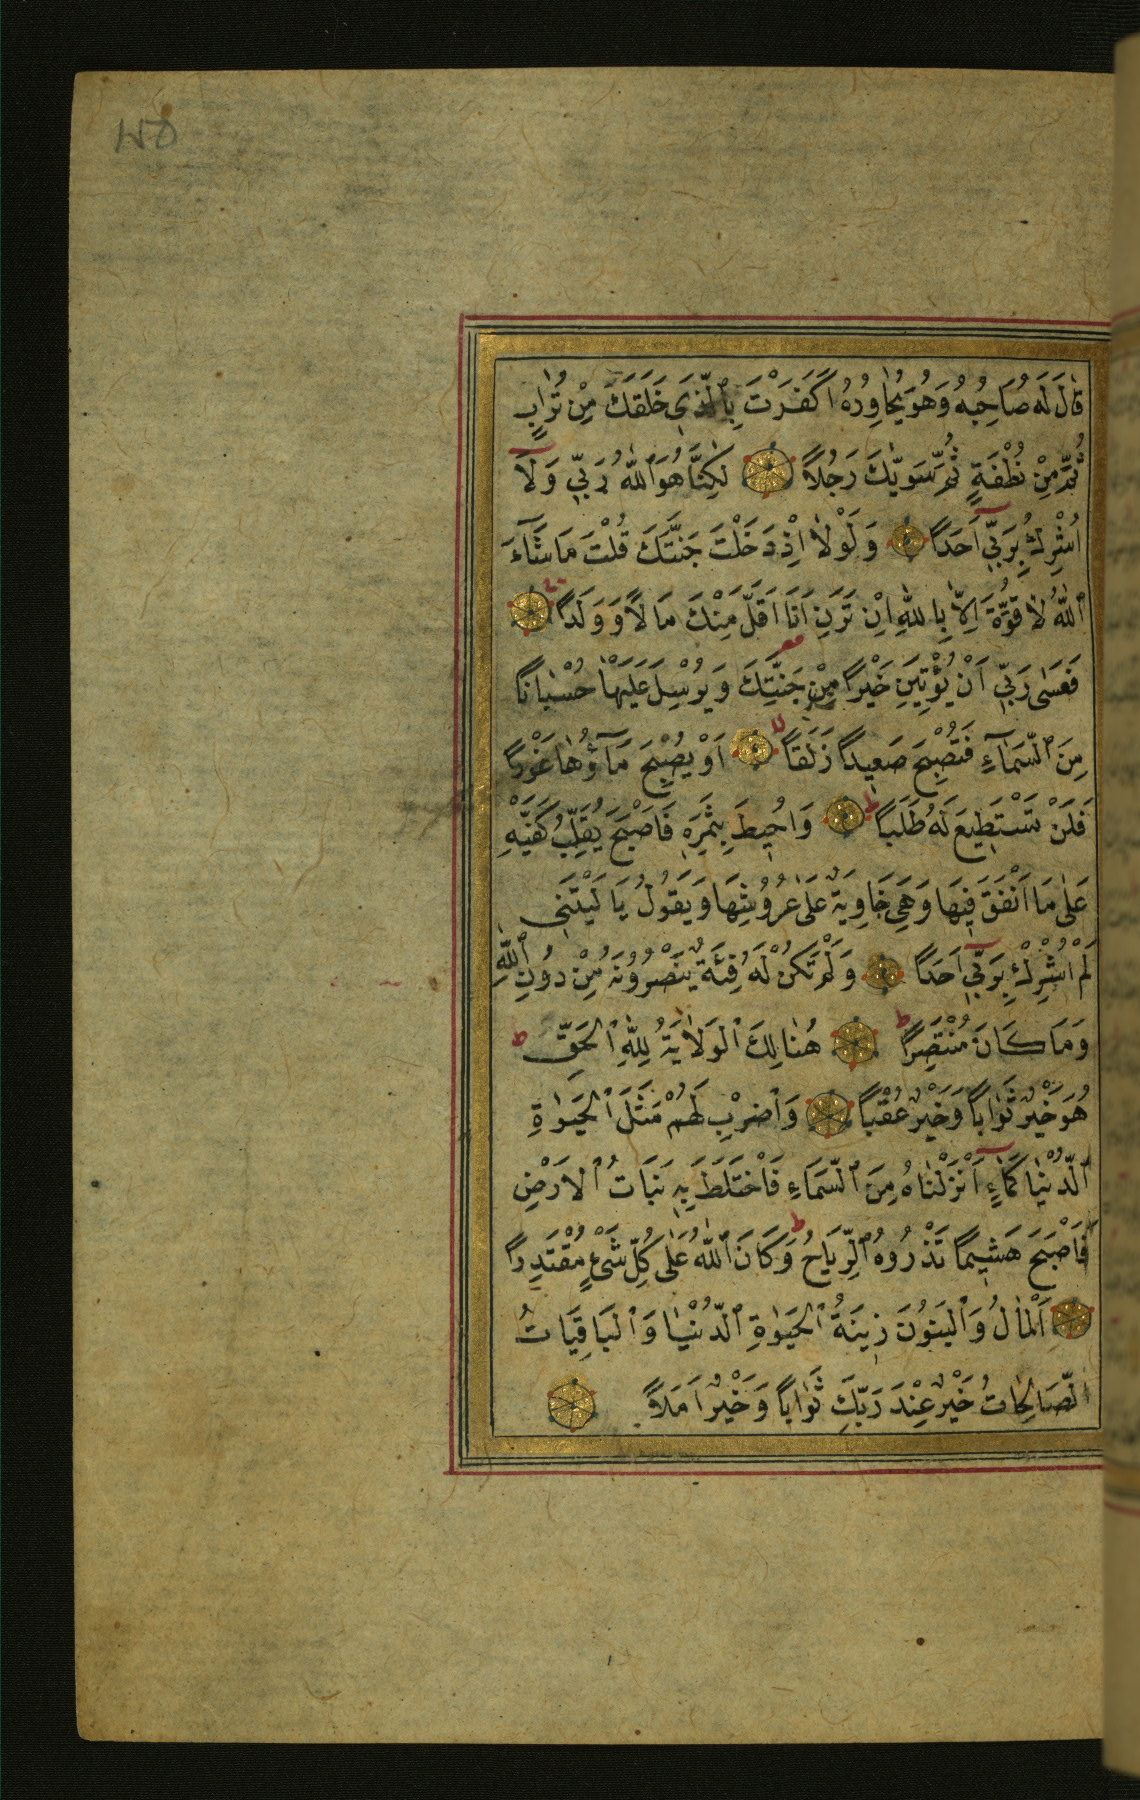 قَالَ لَهُ صَاحِبُهُ وَهُوَ يُحَاوِرُهُ اَكَفَرْتَ بِالَّذِي خَلَقَكَ مِنْ تُرَابٍ
ثُمَّ مِنْ نُطْفَةٍ ثُمَّ سَوّٰيكَ رَجُلاً لٰكِنَّا هُوَ اللّٰهُ رَبِّي وَلَآ
اُشْرِكُ بِرَبِّٓي اَحَدًا وَلَوْلَا اِذْ دَخَلْتَ جَنَّتَكَ قُلْتَ مَا شَآءَ
اللّٰهُ لَا قُوَّةَ اِلَّا بِاللّٰهِ اِنْ تَرَنِ اَنَا اَقَلَّ مِنْكَ مَالًا وَوَلَدًا
فَعَسٰى رَبِّي اَنْ يُؤْتِيَنِ خَيْرًا مِنْ جَنَّتِكَ وَيُرْسِلَ عَلَيْهَا حُسْبَانًا
مِنَ السَّمَآءِ فَتُصْبِحَ صَعِيدًا زَلَقًا اَوْ يُصْبِحَ مَآؤُهَا غَوْرًا
فَلَنْ تَسْتَطِيعَ لَهُ طَلَبًا وَاُحِيطَ بِثَمَرِهِ فَاَصْبَحَ يُقَلِّبُ كَفَّيْهِ
عَلٰى مَا اَنْفَقَ فِيهَا وَهِيَ خَاوِيَةٌ عَلٰى عُرُوشِهَا وَيَقُولُ يَا لَيْتَنِي
لَمْ اُشْرِكْ بِرَبِّٓي اَحَدًا وَلَمْ تَكُنْ لَهُ فِئَةٌ يَنْصُرُونَهُ مِنْ دُونِ اللّٰهِ
وَمَا كَانَ مُنْتَصِرًا هُنَالِكَ الْوَلَايَةُ لِلّٰهِ الْحَقِّ
هُوَ خَيْرٌ ثَوَابًا وَخَيْرٌ عُقْبًا وَاضْرِبْ لَهُمْ مَثَلَ الْحَيٰوةِ
الدُّنْيَا كَمَآءٍ اَنْزَلْنَاهُ مِنَ السَّمَاءِ فَاخْتَلَطَ بِهِ نَبَاتُ الْاَرْضِ
فَاَصْبَحَ هَشِيمًا تَذْرُوهُ الرِّيَاحُ وَكَانَ اللّٰهُ عَلٰى كُلِّ شَيْءٍ مُقْتَدِرًا
اَلْمَالُ وَالْبَنُونَ زِينَةُ الْحَيٰوةِ الدُّنْيَا وَالْبَاقِيَاتُ
الصَّالِحَاتُ خَيْرٌ عِنْدَ رَبِّكَ ثَوَابًا وَخَيْرٌ اَمَلاً